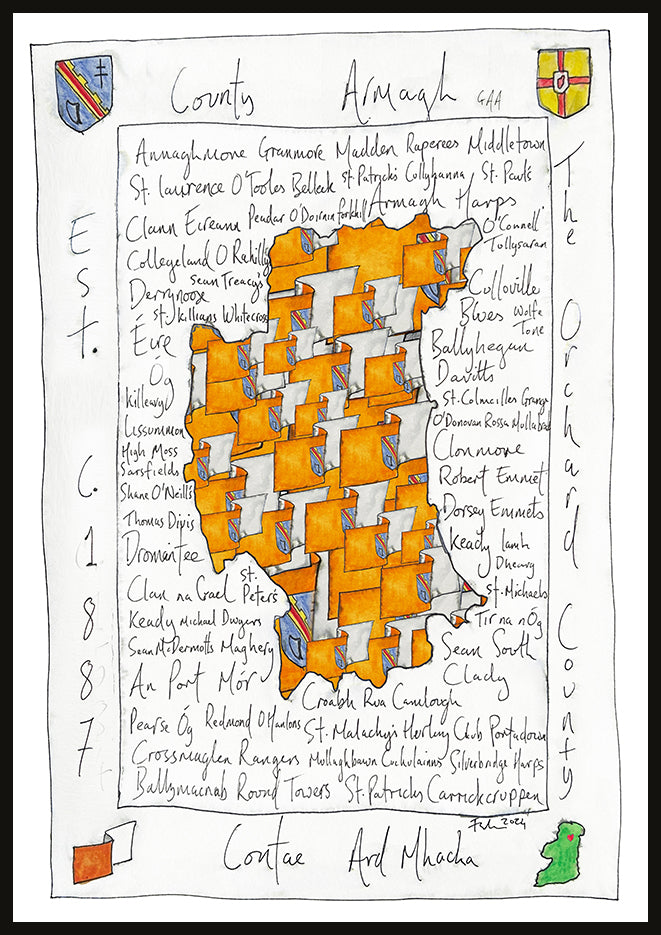 County Armagh GAA
Annaghmore Granmore Madden Raperees Middletown
St. Lawrence O'Tooles Belleek St. Patrick's Cullyhanna St. Paul's
Clann Eireann Peadar O'Doirnin Forkhill Armagh Harps
O'Connell
Tullysaran
Collegeland O Rahilly
Sean Treacy's
Derrynoose
St. Killians Whitecross
Éire
Óg
Killeavy
Lissummon
High Moss
Sarsfields
Shane O'Neill's
Thomas Davis
Dromintee
Clan na Gael St.
Peter's
Keady Michael Dwyers
Sean McDermotts Maghery
An Port Mór
Culloville
Blues Wolfe
Tone
Ballyhegan
Davitts
St. Colmcilles Grange
O'Donovan Rossa Mullabrack
Clonmore
Robert Emmet
Dorsey Emmets
Keady Lamh
Dhearg
St. Michaels
Tir na nÓg
Sean South
Clady
Craobh Rua Camlough
Pearse Óg Redmond O'Hanlons St. Malachy's Hurley Club Portadown
Crossmaglen Rangers Mullaghbawn Cuchulainns Silverbridge Harps
Ballymacnab Round Towers St. Patricks Carrickcruppen
2024
Est. C. 1887
The Orchard County
Contae Ard Mhacha